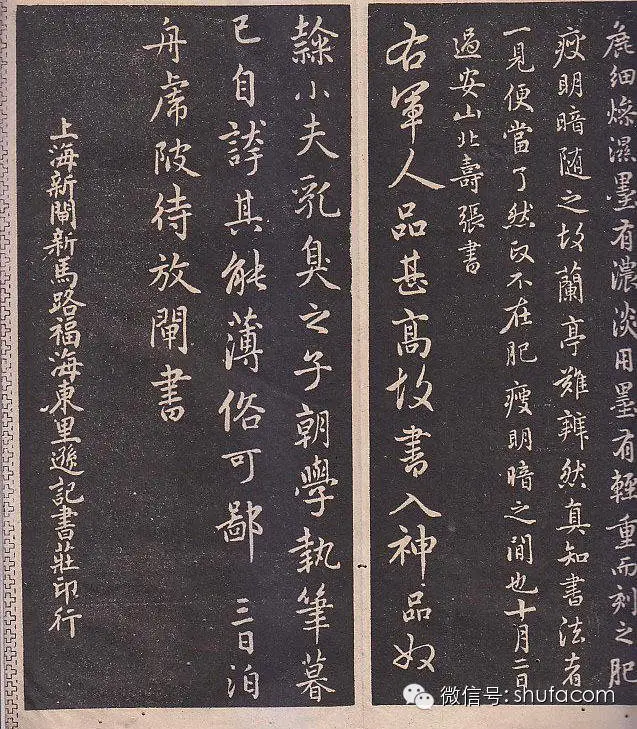 麁细燥濕墨有濃淡用墨有輕重而刻之肥
瘦明暗随之故蘭亭難辨然真知書法者
一見便當了然政不在肥瘦明暗之間也十月二日
過安山北壽張書
右軍人品甚高故書入神品奴
隸小夫乳臭之子朝學執筆暮
已自誇其能薄俗可鄙 三日泊
舟虎陂待放閘書
上海新閘新馬路福海東里遜記書莊印行
微信号: shufacom